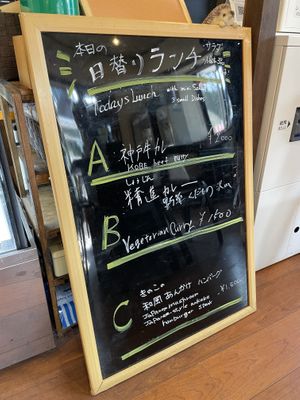 本日の
日替りランチ サラダ
Today's Lunch with mini Salad
3 small Dishes
A 神戸牛カレー ¥1,000
KOBE beef curry
しょうじん
精進カレー
野菜 くだもの
B Vegetarian Curry ¥1600
きのこの
C 和風 あんかけ ハンバーグ ¥1,500
Japanese mushroom
Japanese-style ankake
hamburger steak